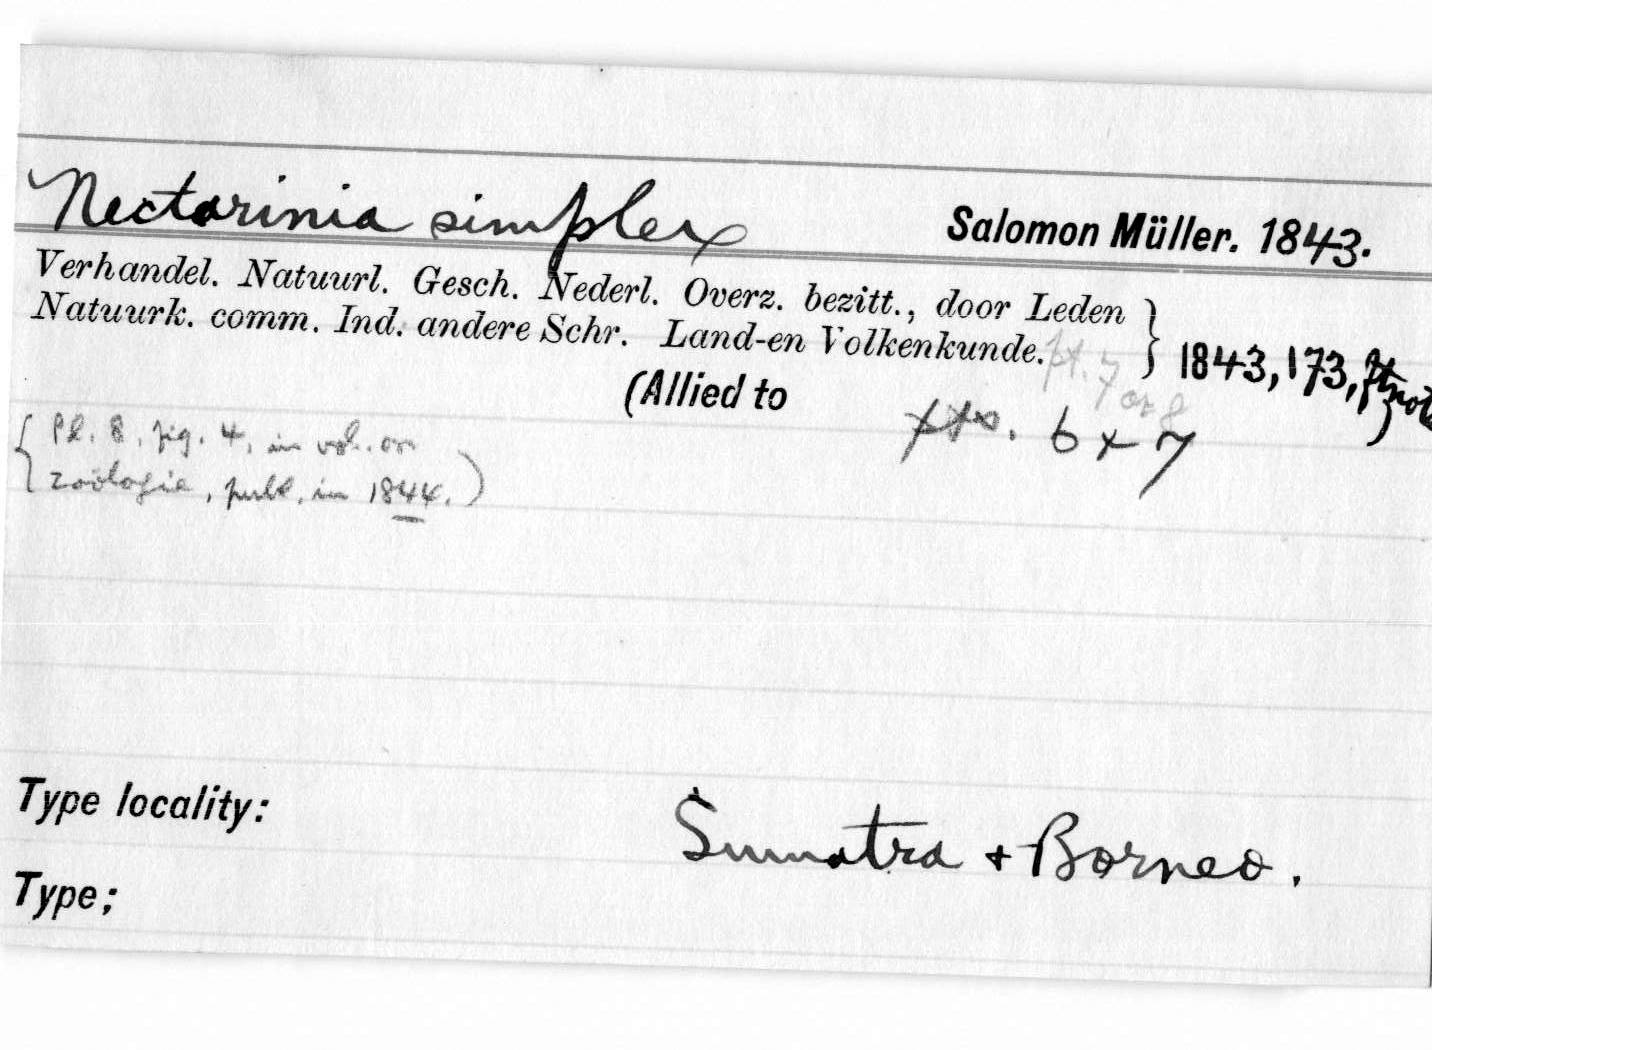 Nectarinia simplex Salomon Müller. 1843.
Verhandel. Natuurl. Gesch. Nederl. Overz. bezitt., door Leden
Natuurk. comm. Ind. andere Schr. Land-en Volkenkunde. } 1843, 173, ftnote
pt. 7 or 8
(Allied to )
pts. 6 + 7
{ Pl. 8, fig. 4, in vol. on
zoölogie, publ. in 1844. )
Type locality: Sumatra + Borneo.
Type;